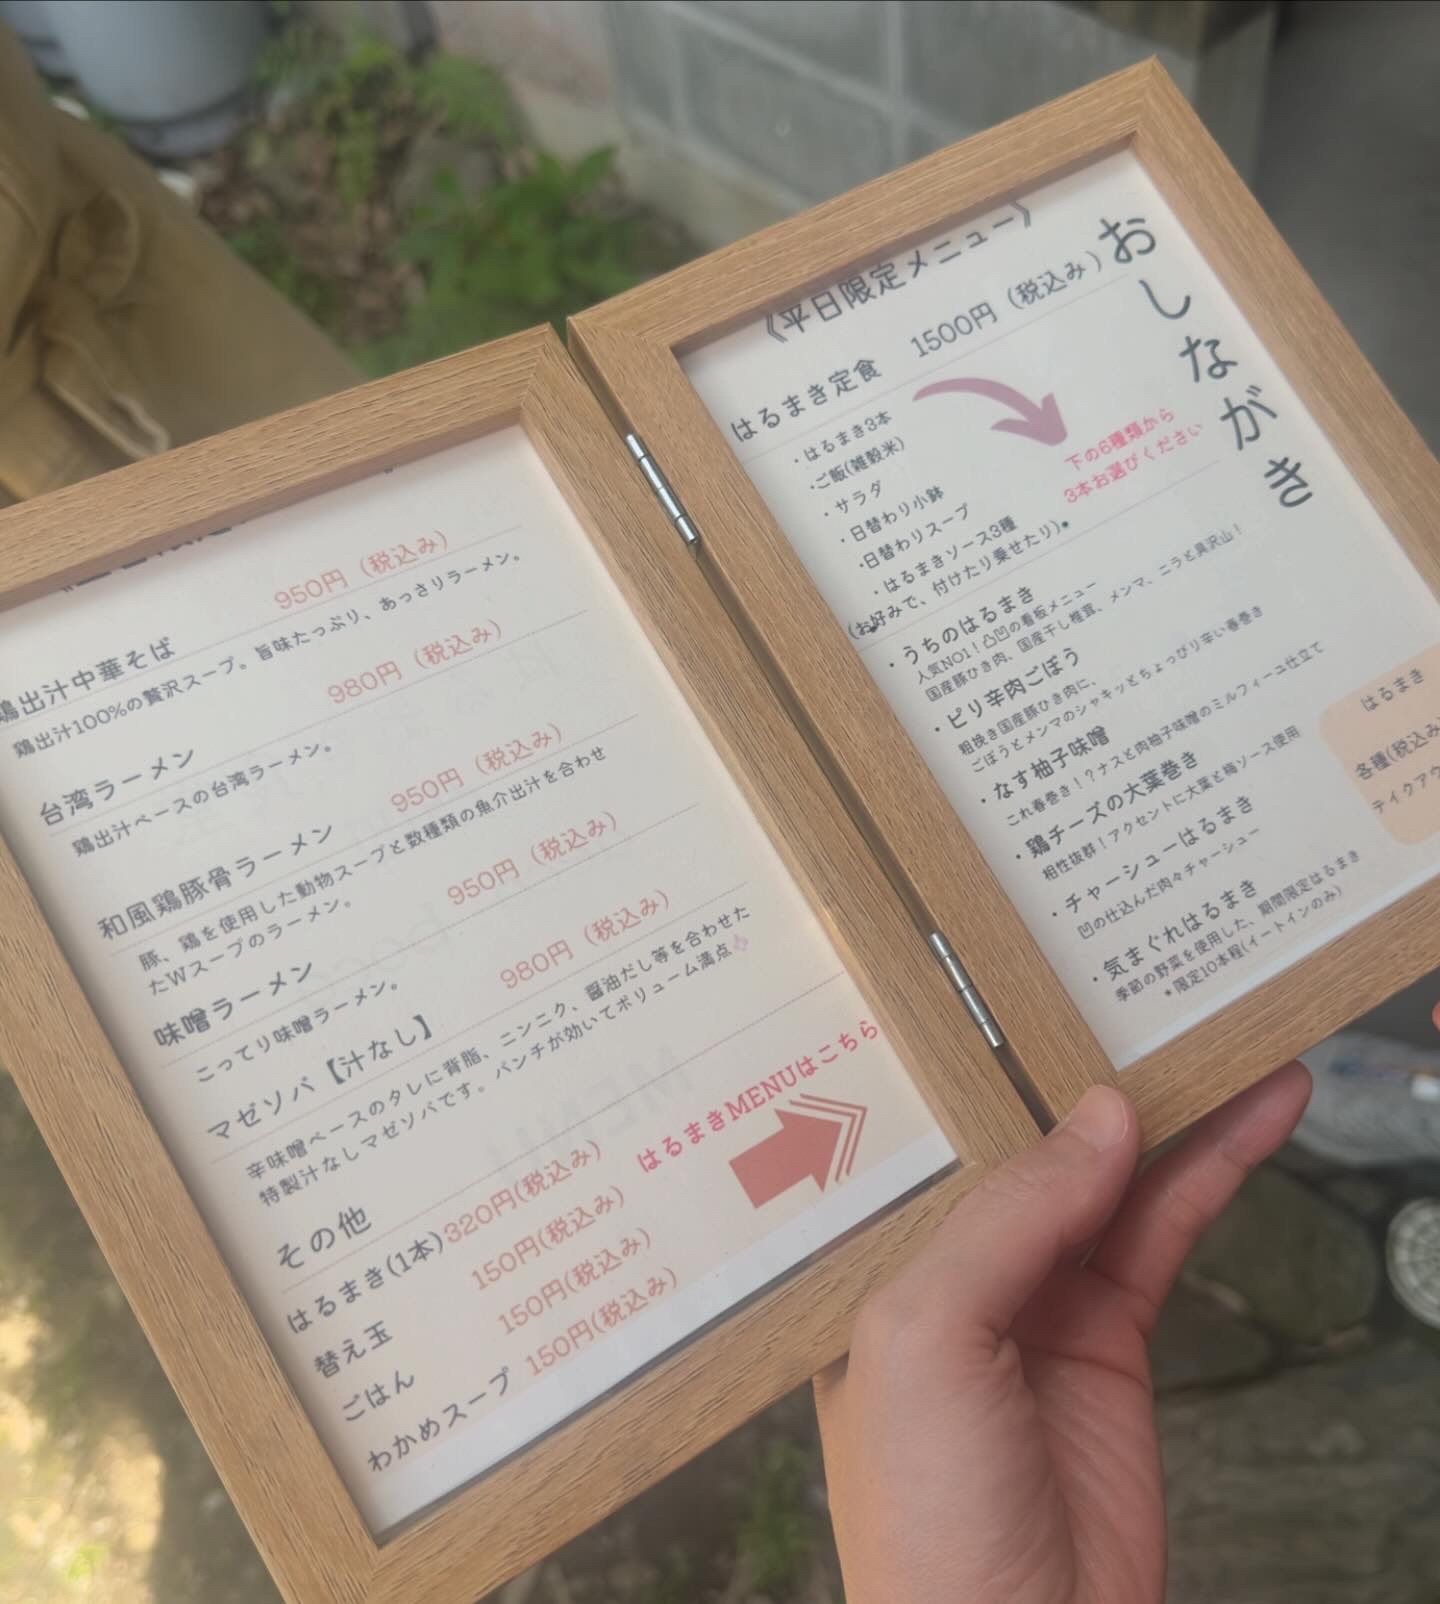 鶏出汁中華そば 950円（税込み）
鶏出汁100%の贅沢スープ。旨味たっぷり、あっさりラーメン。
台湾ラーメン 980円（税込み）
鶏出汁ベースの台湾ラーメン。
和風鶏豚骨ラーメン 950円（税込み）
豚、鶏を使用した動物スープと数種類の魚介出汁を合わせ
たWスープのラーメン。
味噌ラーメン 950円（税込み）
こってり味噌ラーメン。
マゼソバ【汁なし】 980円（税込み）
辛味噌ベースのタレに背脂、ニンニク、醤油だし等を合わせた
特製汁なしマゼソバです。パンチが効いてボリューム満点
その他
はるまき(1本) 320円(税込み)
替え玉 150円(税込み)
ごはん 150円(税込み)
わかめスープ 150円(税込み)
はるまきMENUはこちら
おしながき
《平日限定メニュー》
はるまき定食 1500円（税込み）
・はるまき3本
・ご飯(雑穀米)
・サラダ
・日替わり小鉢
・日替わりスープ
・はるまきソース3種
(お好みで、付けたり乗せたり)
下の6種類から
3本お選びください
・うちのはるまき
人気NO1！凸凹の看板メニュー
国産豚ひき肉、国産干し椎茸、メンマ、ニラと具沢山！
・ピリ辛肉ごぼう
粗挽き国産豚ひき肉に、
ごぼうとメンマのシャキッとちょっぴり辛い春巻き
・なす柚子味噌
これ春巻き！？ナスと肉柚子味噌のミルフィーユ仕立て
・鶏チーズの大葉巻き
相性抜群！アクセントに大葉と梅ソース使用
・チャーシューはるまき
凹の仕込んだ肉々チャーシュー
・気まぐれはるまき
季節の野菜を使用した、期間限定はるまき
*限定10本程(イートインのみ)
はるまき
各種(税込み
テイクアウ